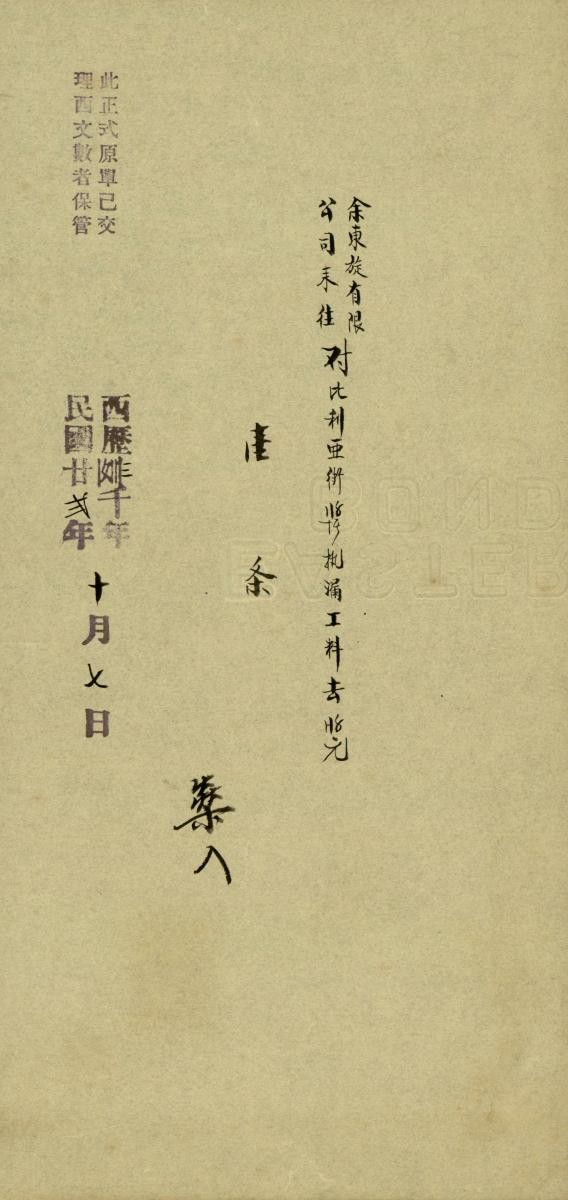 余東旋有限
公司来往
对比利亜街
执漏工料去
元
条
入
西歷千年
民國廿弍年
十月七日
此正式原單已交
理西文數者保管